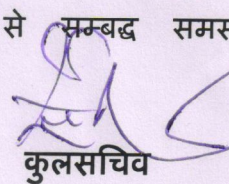 से सम्बद्ध समस
कुलसचिव